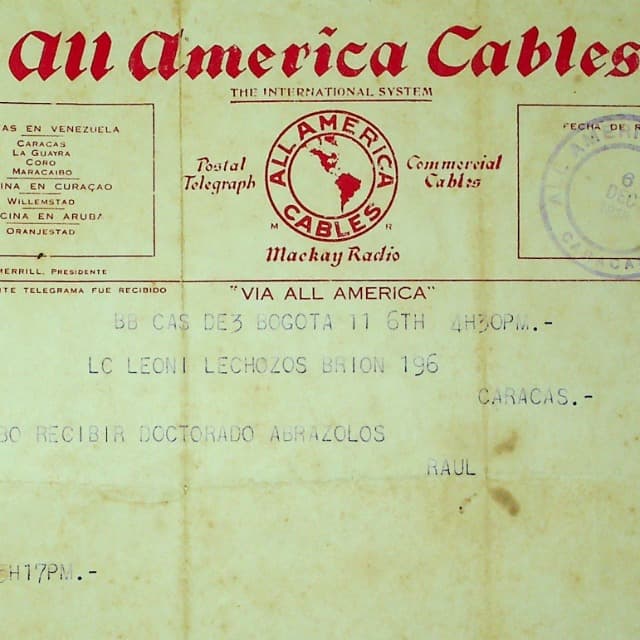 All America Cables
THE INTERNATIONAL SYSTEM
AS EN VENEZUELA
CARACAS
LA GUAYRA
CORO
MARACAIBO
INA EN CURAÇAO
WILLEMSTAD
CINA EN ARUBA
ORANJESTAD
Postal
Telegraph
ALL AMERICA
CABLES
M R
Commercial
Cables
Mackay Radio
FECHA DE R
ALL AMERI
6
DEC
CARACA
MERRILL, PRESIDENTE
TE TELEGRAMA FUE RECIBIDO
"VIA ALL AMERICA"
BB CAS DE3 BOGOTA 11 6TH 4H30PM.-
LC LEONI LECHOZOS BRION 196
CARACAS.-
BO RECIBIR DOCTORADO ABRAZOLOS
RAUL
5H17PM.-